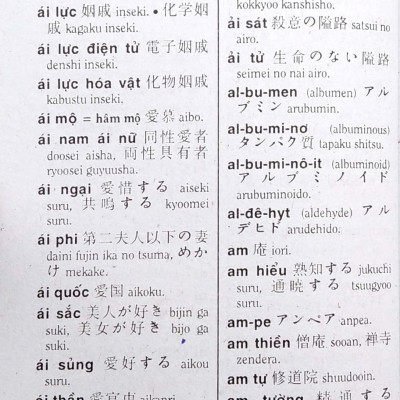 ái lực 姻戚 inseki. • 化学姻
戚 kagaku inseki.
ái lực điện tử 電子姻戚
denshi inseki.
ái lực hóa vật 化物姻戚
kabustu inseki.
ái mộ = hâm mộ 愛慕 aibo.
ái nam ái nữ 同性愛者
doosei aisha, 両性具有者
ryoosei guyuusha.
ái ngại 愛惜する aiseki
suru, 共鳴する kyoomei
suru.
ái phi 第二夫人以下の妻
daini fujin ika no tsuma, めか
け mekake.
ái quốc 愛国 aikoku.
ái sắc 美人が好き bijin ga
suki, 美女が好き bijo ga
suki.
ái sủng 愛好する aikou
suru.
kokkyoo kanshisho.
ải sát 殺意の隘路 satsui no
airo.
ải tử 生命のない隘路
seimei no nai airo.
al-bu-men (albumen) アル
ブミン arubumin.
al-bu-mi-nơ (albuminous)
タンパク質 tapaku shitsu.
al-bu-mi-nô-it (albuminoid)
アルブミノイド
arubuminoido.
al-đê-hyt (aldehyde) アル
デヒド arudehido.
am 庵 iori.
am hiểu 熟知する jukuchi
suru, 通暁する tsuugyoo
suru.
am-pe アンペア anpea.
am thiền 僧庵 sooan, 禅寺
zendera.
am tự 修道院 shuudooin.
am tường 精通する